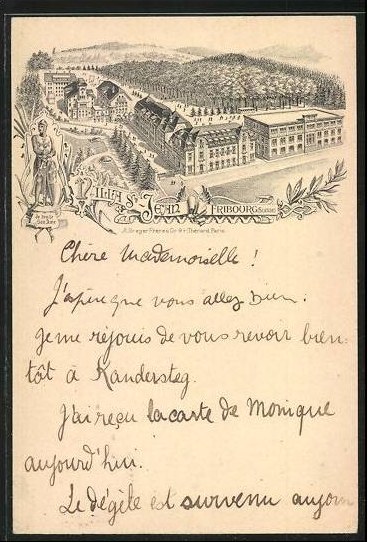 VILLA St JEAN FRIBOURG (SUISSE)
Chère Mademoiselle !
J'espère que vous allez bien.
Je me réjouis de vous revoir bien-
tôt à Kandersteg.
J'ai reçu la carte de Monique
aujourd'hui.
Le dégèle est survenu aujour